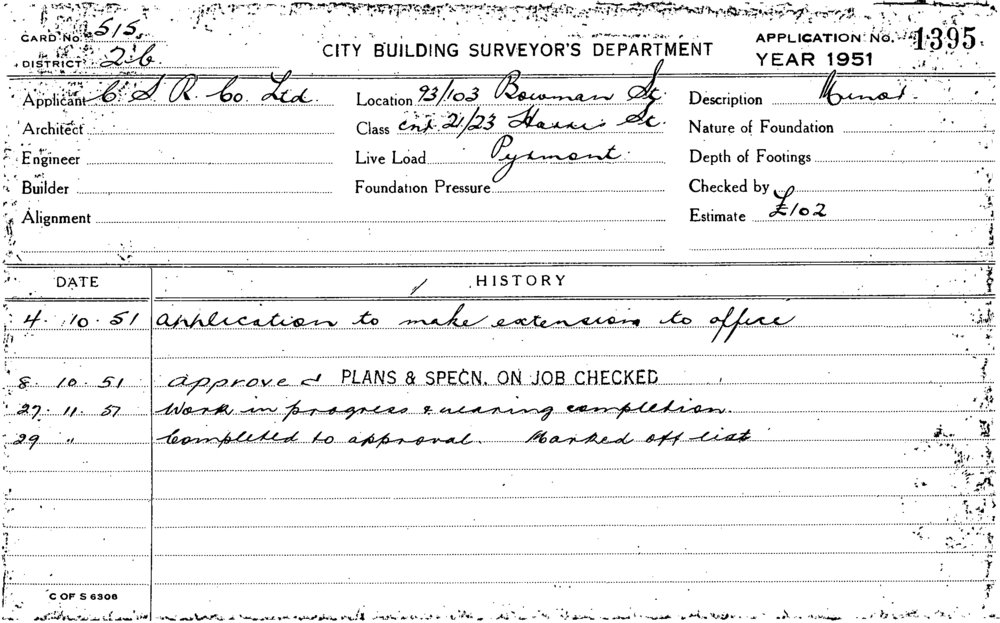 CARD No. 515
DISTRICT 26
CITY BUILDING SURVEYOR'S DEPARTMENT
APPLICATION No. 1395
YEAR 1951
Applicant C. S. R. Co. Ltd. Location 93/103 Bowman St Description Minor
Architect Class cnr 21/23 Harris St. Nature of Foundation
Engineer Live Load Pyrmont Depth of Footings
Builder Foundation Pressure Checked by
Alignment Estimate £102
DATE HISTORY
4. 10. 51 application to make extensions to office
8. 10. 51 approved PLANS & SPECN. ON JOB CHECKED
27. 11. 51 Work in progress & nearing completion.
29 " Completed to approval. Marked off list
C OF S 6306